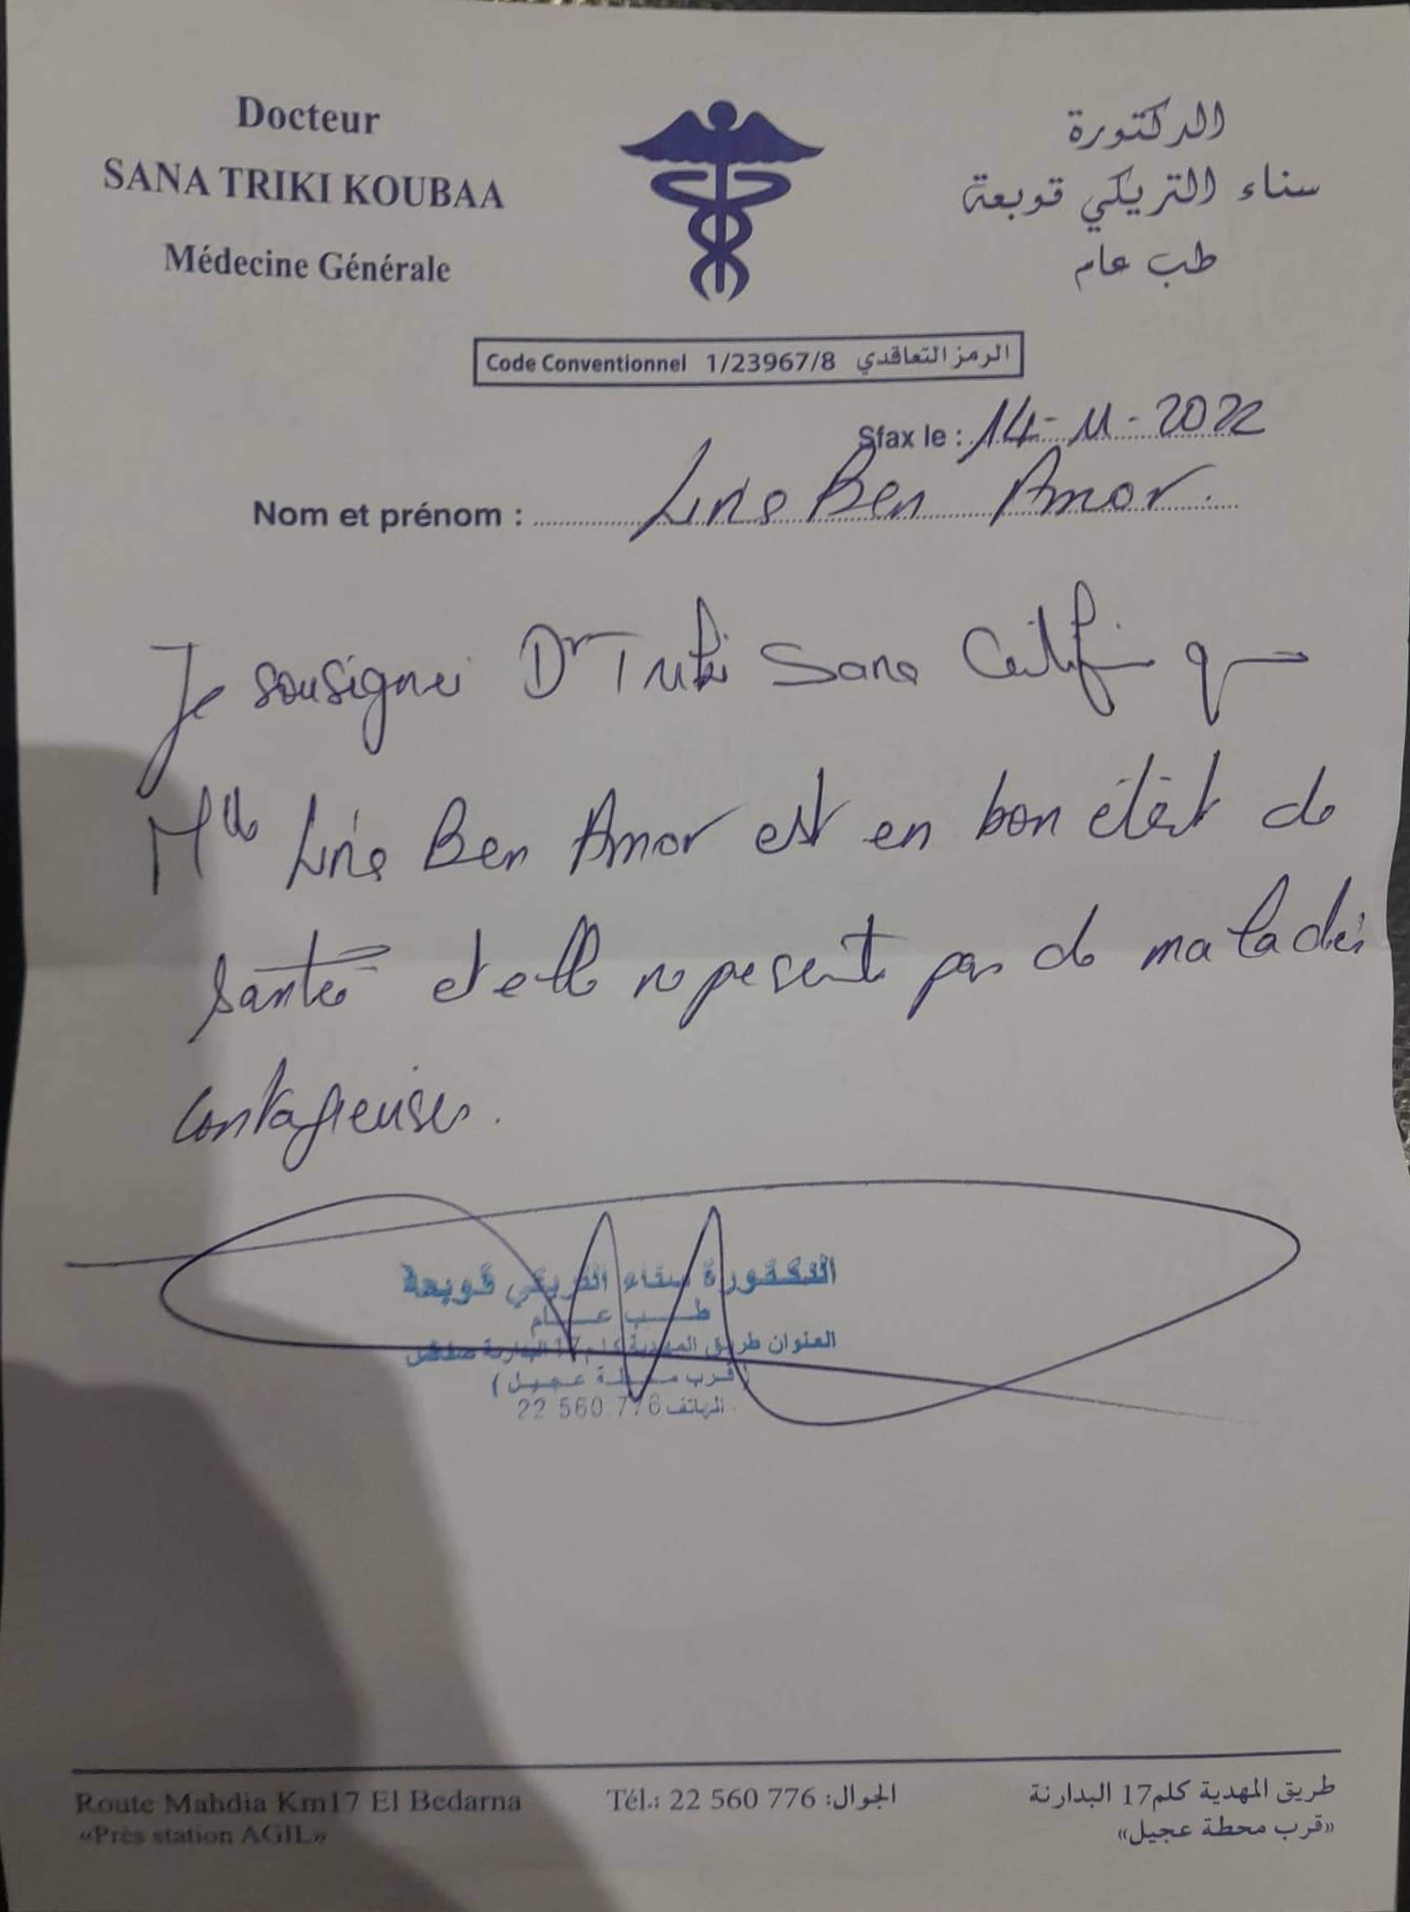 Docteur
SANA TRIKI KOUBAA
Médecine Générale
الدكتورة
سناء التريكي قوبعة
طب عام
Code Conventionnel 1/23967/8 الرمز التعاقدي
Sfax le : 14-11-2022
Nom et prénom : Line Ben Amor.
Je sousigner Dr Triki Sana Certifie que
Mlle Line Ben Amor est en bon état de
santé et elle ne pesente pas de maladies
contagieuses.
الدكتورة سناء التريكي قوبعة
طب عام
العنوان طريق المهدية كلم17 البدارنة صفاقس
(قرب محطة عجيل)
الهاتف 22 560 776
Route Mahdia Km17 El Bedarna
«Près station AGIL»
Tél.: 22 560 776 :الجوال
طريق المهدية كلم17 البدارنة
«قرب محطة عجيل»